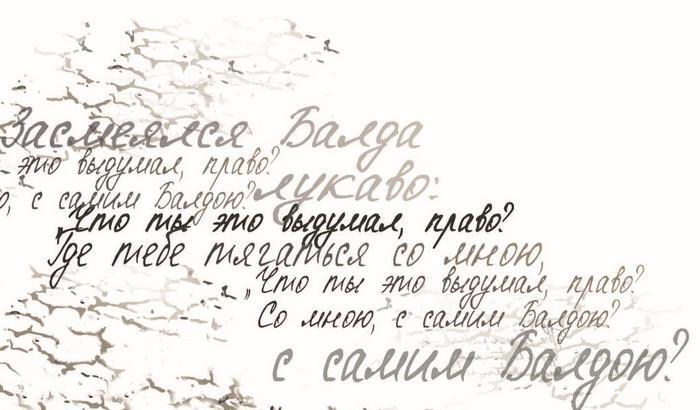 Засмеялся Балда
это выдумал, право?
лукаво:
с самим Балдою?
„Что ты это выдумал, право?
Где тебе тягаться со мною,
„Что ты это выдумал, право?
Со мною, с самим Балдою?
с самим Балдою?